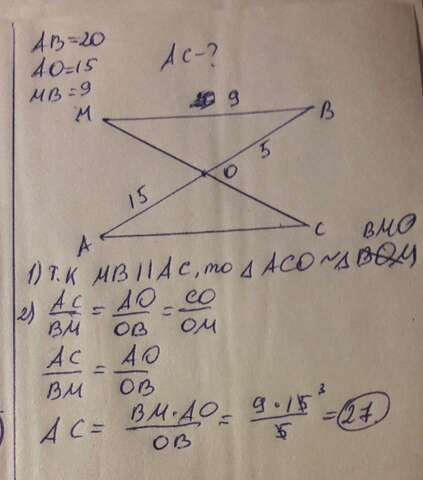 AB=20
AO=15
MB=9
AC-?
9
M
B
5
O
15
A
C
BMO
1) Т.К MB||AC, то Δ ACO ~ Δ BOM
2) AC/BM = AO/OB = CO/OM
AC/BM = AO/OB
AC = BM·AO/OB = 9·15 3/5 = 27